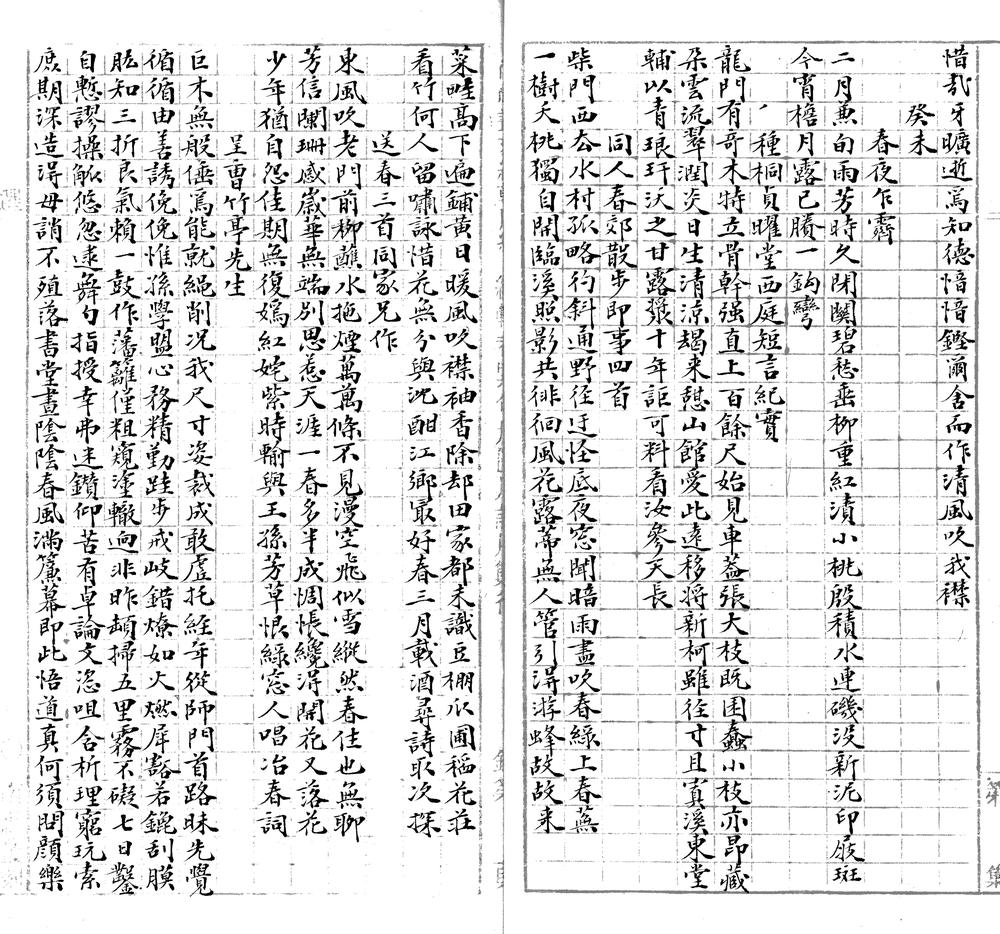 惜哉牙曠逝焉知德愔愔鏗爾舍而作清風吹我襟
癸未
春夜乍霽
二月兼旬雨芳時久閉關碧愁垂柳重紅漬小桃殷積水連磯沒新泥印屐斑
今宵檐月露已勝一鈎彎
種桐貞曜堂西庭短言紀實
龍門有奇木特立骨幹强直上百餘尺始見車蓋張大枝既囷蠢小枝亦昂藏
朵雲流翠潤炎日生清涼朅来憩山館愛此遠移將新柯雖徑寸且賓溪東堂
輔以青琅玕沃之甘露漿十年詎可料看汝參天長
同人春郊散步即事四首
柴門西去水村孤略彴斜通野径迂怪底夜窓聞暗雨盡吹春綠上春蕪
一樹夭桃獨自開臨溪照影共徘徊風花露蕚無人管引淂游蜂故故来
菜畦高下遍鋪黃日暖風吹襟袖香除却田家都未識豆棚瓜圃稻花莊
看竹何人留嘯詠惜花無分與沈酣江鄉㝡好春三月載酒尋詩取次探
送春三首同家兄作
東風吹老門前柳蘸水拖煙萬萬條不見漫空飛似雪縱然春住也無聊
芳信闌珊感歲華無端別思惹天涯一春多半成惆悵纔淂開花又落花
少年猶自怨佳期無復嫣紅姹紫時輸與王孫芳草恨綠窓人唱冶春詞
呈曹竹亭先生
巨木無般倕焉能就繩削况我尺寸姿裁成敢虛托經年從師門首路昧先覺
循循由善誘俛俛惟孫學盟心務精勤跬步戒岐錯燎如火燃犀豁若錕刮膜
肱知三折良氣賴一鼓作藩籬僅粗窺塗轍迥非昨頡掃五里霧不礙七日鑿
自慙謬操觚悠忽逮舞勺指授幸弗迷鑽仰苦有卓論文恣咀含析理窮玩索
庶期深造淂毋誚不殖落書堂晝陰陰春風滿簾幕即此悟道真何須問顔樂